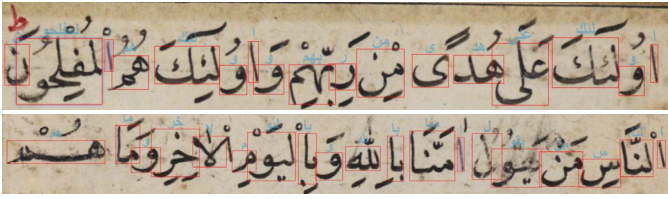 اُولٰئِكَ عَلَى هُدًى مِّنْ رَبِّهِمْ وَاُولٰئِكَ هُمُ الْمُفْلِحُونَ ط
الْنَّاسِ مَنْ يَقُولُ اٰمَنَّا بِاللّٰهِ وَبِالْيَوْمِ الْاٰخِرِ وَمَا هُمْ